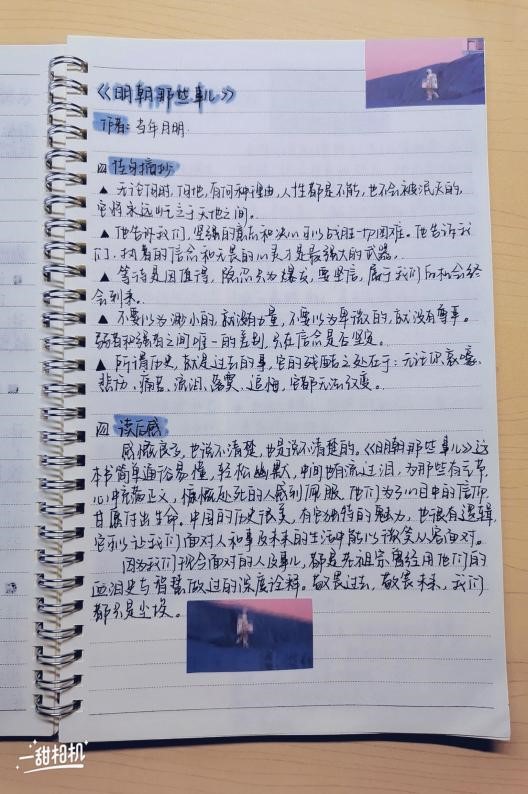 《明朝那些事儿》
作者：当年明月
佳句摘抄
▲ 无论何时，何地，有何种理由，人性都是不能，也不会被泯灭的，
它将永远屹立于天地之间。
▲ 他告诉我们，坚强的意志和决心可以战胜一切困难。他告诉我
们，执着的信念和无畏的心灵才是最强大的武器。
▲ 等待是因值得，隐忍只为爆发，要坚信，属于我们的机会终
会到来。
▲ 不要以为渺小的，就没有力量，不要以为卑微的，就没有尊严。
弱者和强者之间唯一的差别，只在信念是否坚定。
▲ 所谓历史，就是过去的事，它的残酷之处在于：无论你哀嚎、
悲伤、痛苦、流泪、落寞、追悔，它都无法改变。
读后感
感慨良多，也说不清楚，也是说不清楚的。《明朝那些事儿》这
本书简单通俗易懂，轻松幽默，中间也有流过泪，为那些有云草，
心中充满正义，慷慨赴死的人感到佩服。他们为了心目中的信仰
甘愿付出生命。中国的历史很美，有它独特的魅力，也很有逻辑，
它可以让我们面对人和事及未来的生活中能以微笑从容面对。
因为我们现今面对的人及事儿，都是先祖宗曾经用他们的
血泪史与智慧做过的深度诠释。敬畏过去，敬畏未来，我们
都只是尘埃。
一甜相机